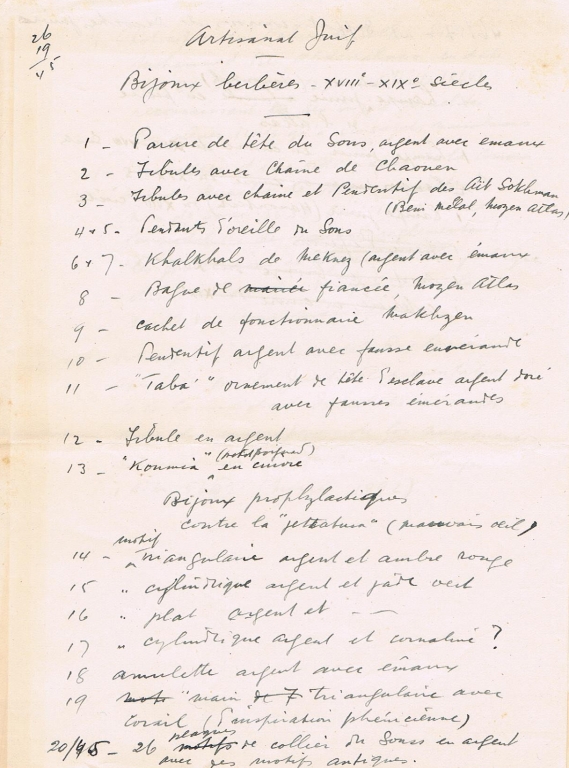 26
19
45
Artisanal Juif
Bijoux berbères - XVIIIe - XIXe siècles
1 - Parure de tête du Sous, argent avec émaux
2 - Fibules avec chaîne de Chaouen
3 - Fibules avec chaîne et Pendentif des Aït Sokhman
(Beni Mellal, Moyen Atlas)
4 & 5 - Pendants d'oreille du Sous
6 & 7 - Khalkhals de Meknez (argent avec émaux
8 - Bague de mariée fiancée, Moyen Atlas
9 - cachet de fonctionnaire Makhzen
10 - Pendentif argent avec fausse émeraude
11 - "Taba" ornement de tête d'esclave argent doré
avec fausses émérandes
12 - Fibule en argent
13 - "Koumia" en cuivre
Bijoux prophylactiques
contre la "jettatura" (mauvais œil)
motif
14 - triangulaire argent et ambre rouge
15 " cylindrique argent et jade vert
16 " plat argent et - -
17 " cylindrique argent et cornaline ?
18 amulette argent avec émaux
19 moto "main de 7 triangulaire avec
corail (d'inspiration phénicienne)
plaques
20/45 - 26 motifs de collier du Souss en argent
avec des motifs antiques.